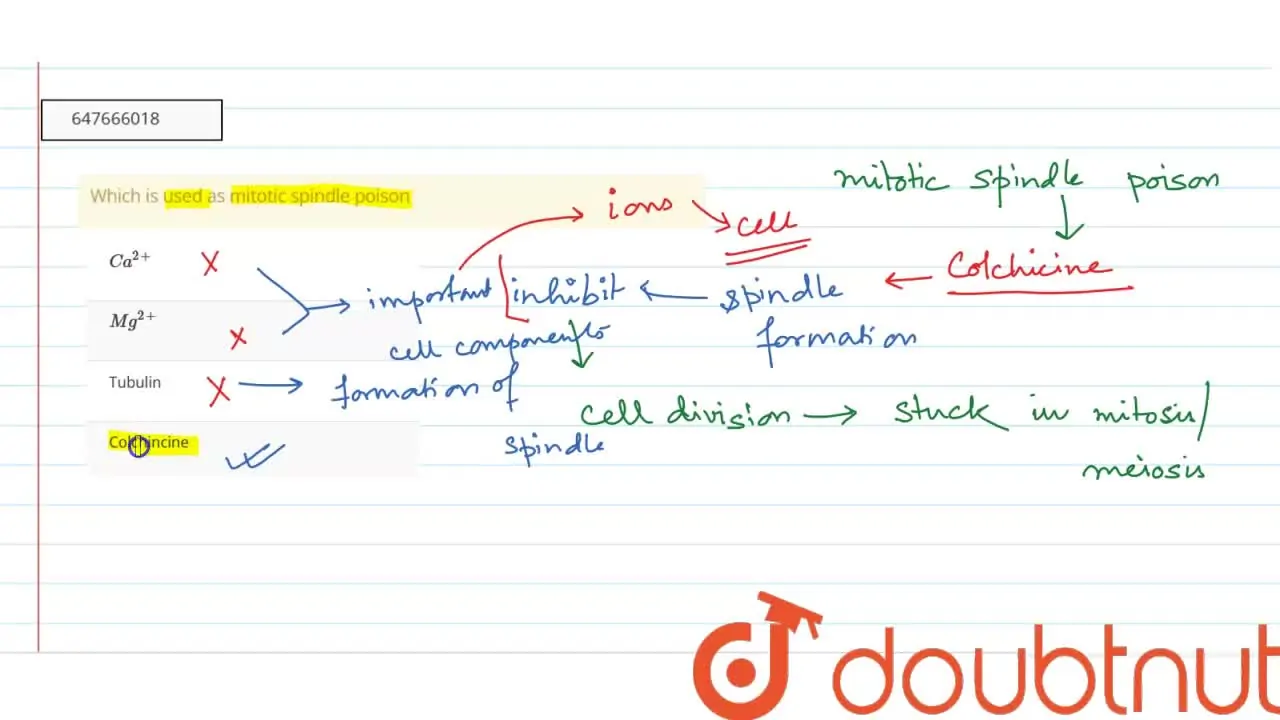 647666018
Which is used as mitotic spindle poison
Ca2+ X
Mg2+ X
Tubulin X
Colchincine
important ions
cell components
formation of
spindle
mitotic spindle poison
Colchicine
cell
inhibit spindle
formation
cell division stuck in mitosis/
meiosis
doubtnut